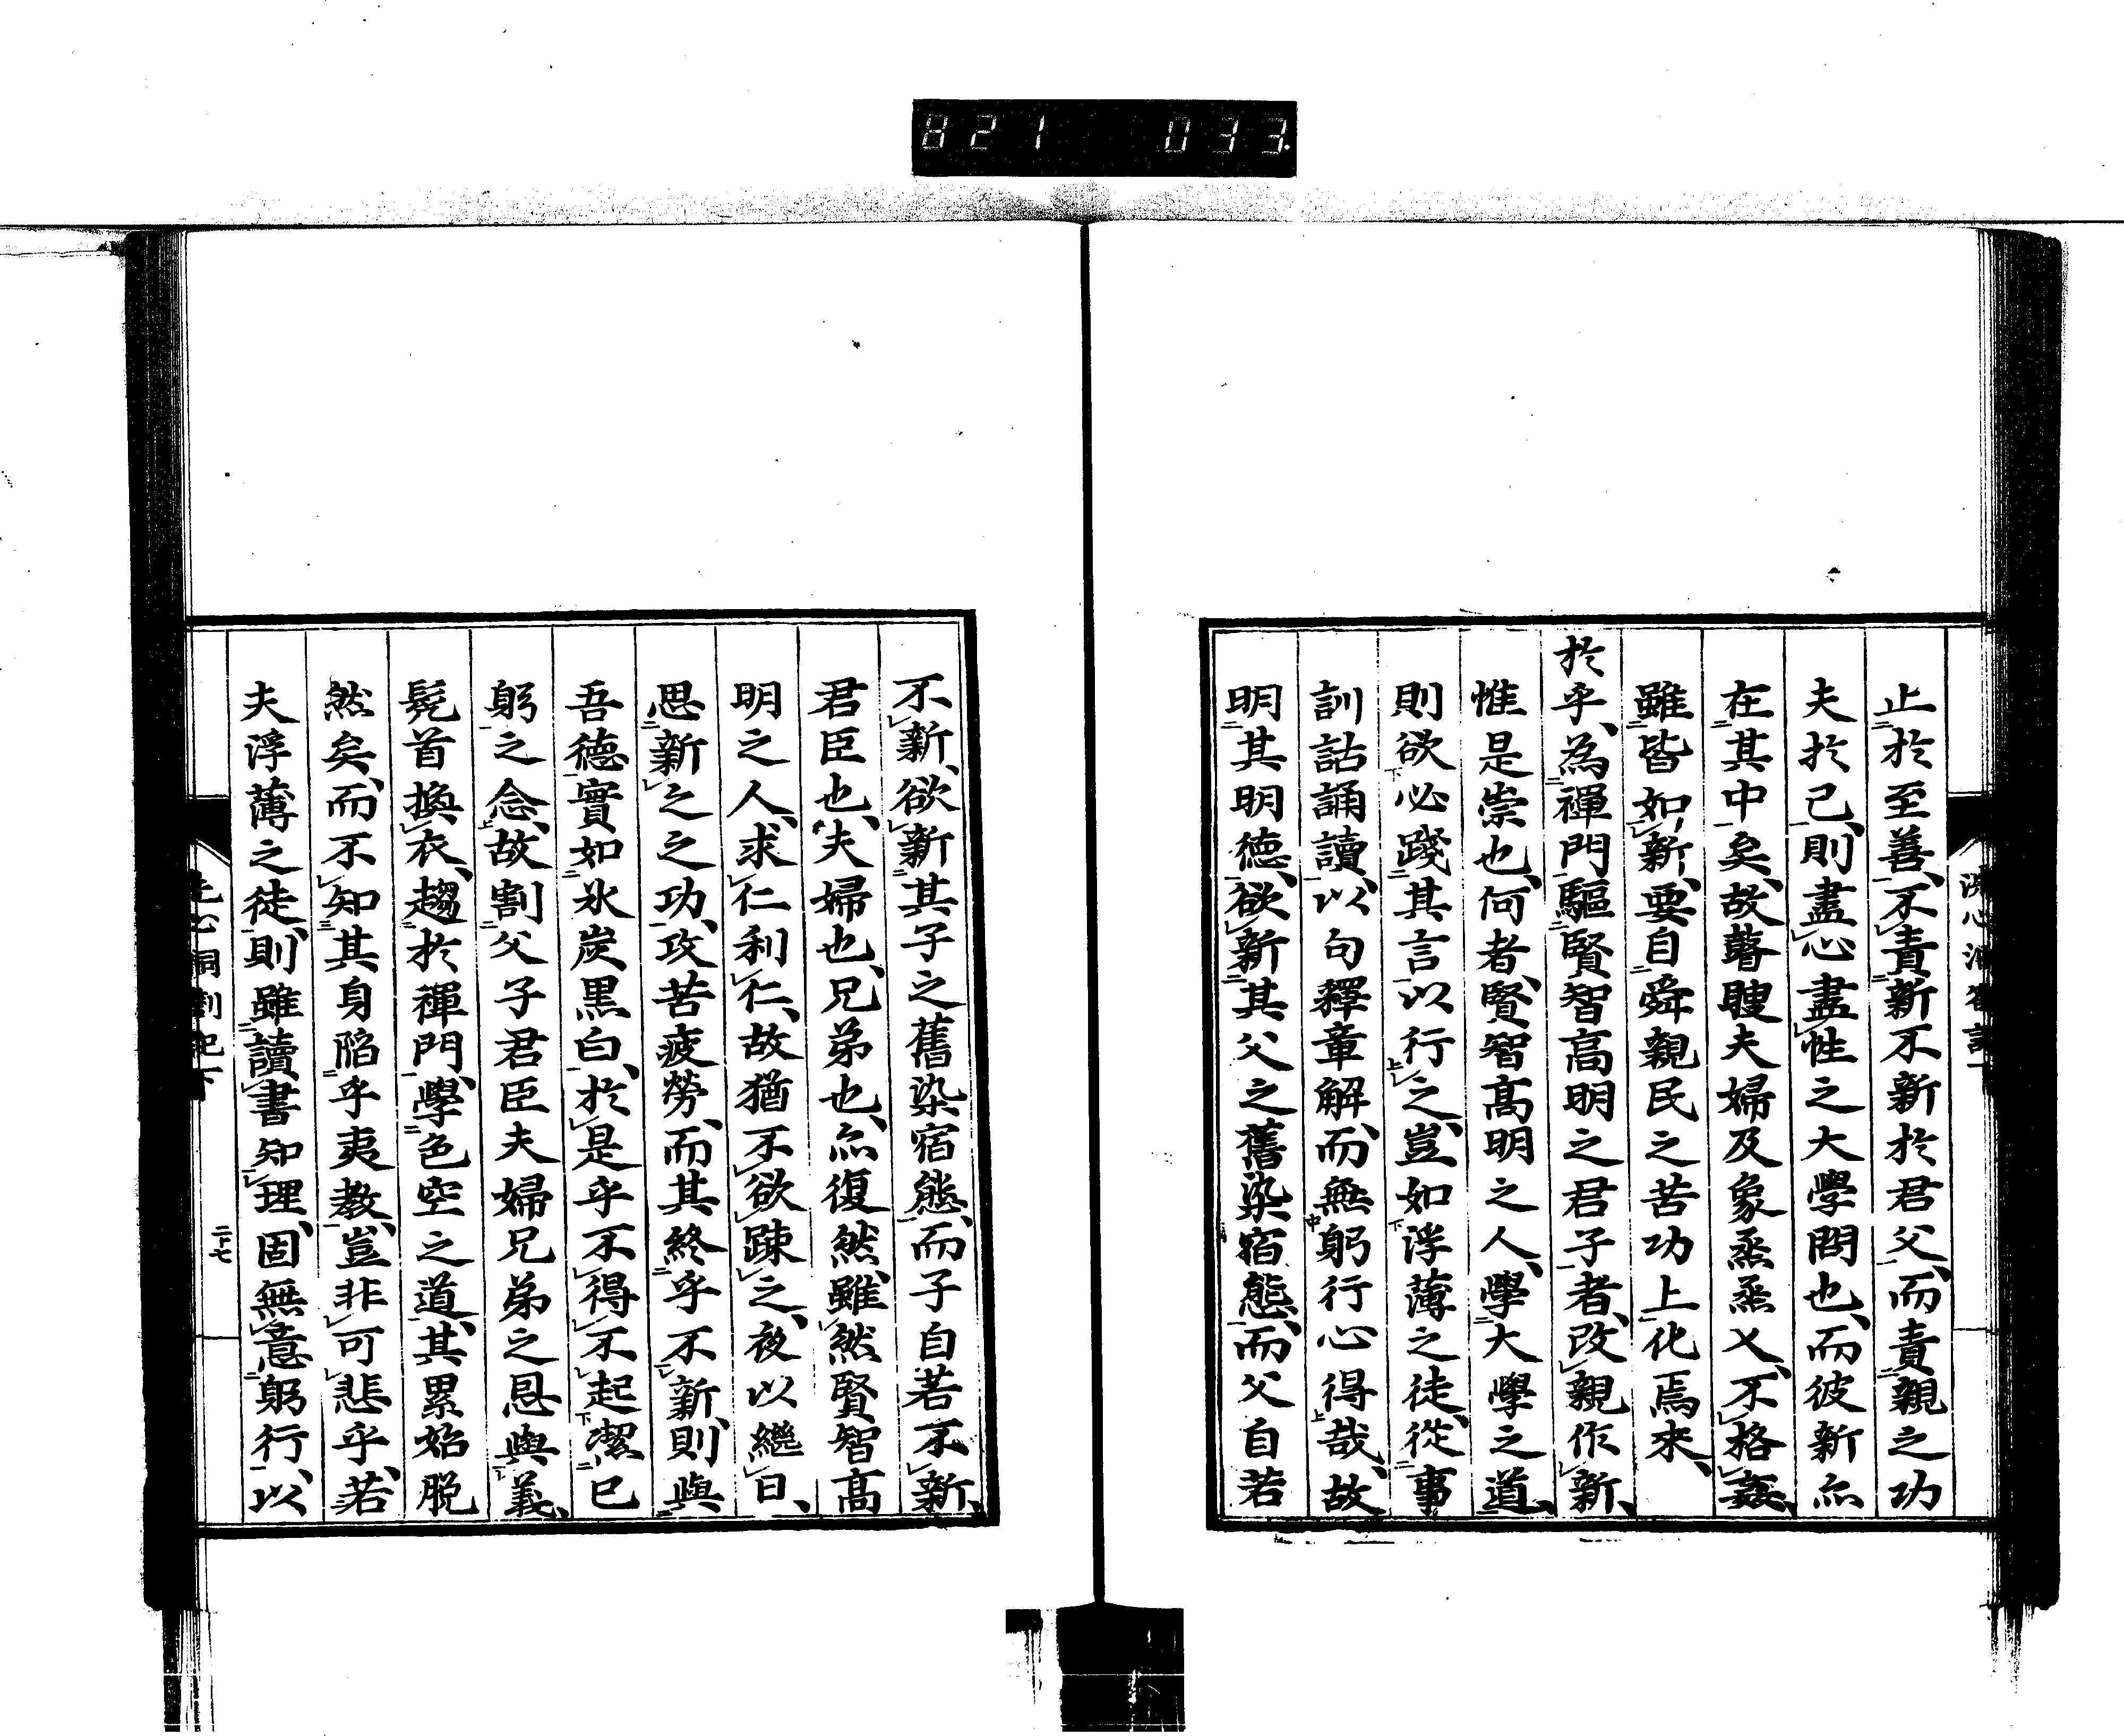 821 033
止於至善、不責新不新於君父、而責親之功
夫於己、則盡心盡性之大學問也、而彼新亦
在其中矣、故瞽瞍夫婦及象烝烝乂、不格姦、
雖皆如新、要自舜親民之苦功上化焉来、
於乎、為禪門驅賢智高明之君子者、改親作新、
惟是祟也、何者、賢智高明之人、學大學之道、
則欲必踐其言以行之、豈如浮薄之徒、從事
訓詁誦讀、以句釋章解、而無躬行心得哉、故
明其明德、欲新其父之舊染宿態、而父自若
不新、欲新其子之舊染宿態、而子自若不新、
君臣也、夫婦也、兄弟也、亦復然、雖然賢智高
明之人、求仁利仁、故猶不欲踈之、夜以繼日、
思新之之功、攻苦疲勞、而其終乎不新、則與
吾德實如氷炭黒白、於是乎不得不起潔己
躬之念、故割父子君臣夫婦兄弟之恩與義、
髡首換衣、趨於禪門、學色空之道、其累始脱
然矣、而不知其身陷乎夷教、豈非可悲乎、若
夫浮薄之徒、則雖讀書知理、固無意躬行、以
洞劄記下
二十七